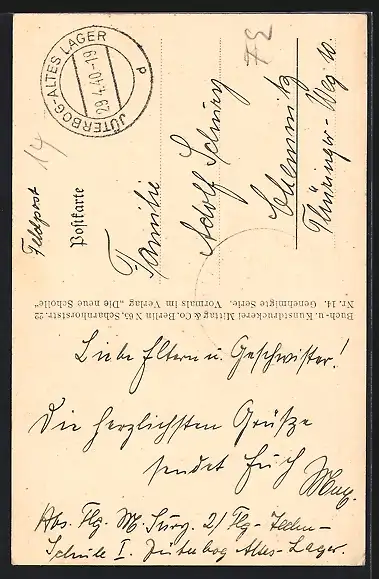 JÜTERBOG-ALTES LAGER
29.4.40-19
Feldpost
Postkarte
Familie
Adolf
Chemnitz
Thüringer-Weg 10.
Buch- u. Kunstdruckerei Mittag & Co. Berlin N 65, Scharnhorststr. 22
Nr. 14. Genehmigte Serie. Vormals im Verlag „Die neue Scholle“
Liebe Eltern u. Geschwister!
Die herzlichsten Grüße
sendet Euch
Abs. Flg. M. 2/ Flg-Techn-
Schule I. Jüterbog Altes-Lager.